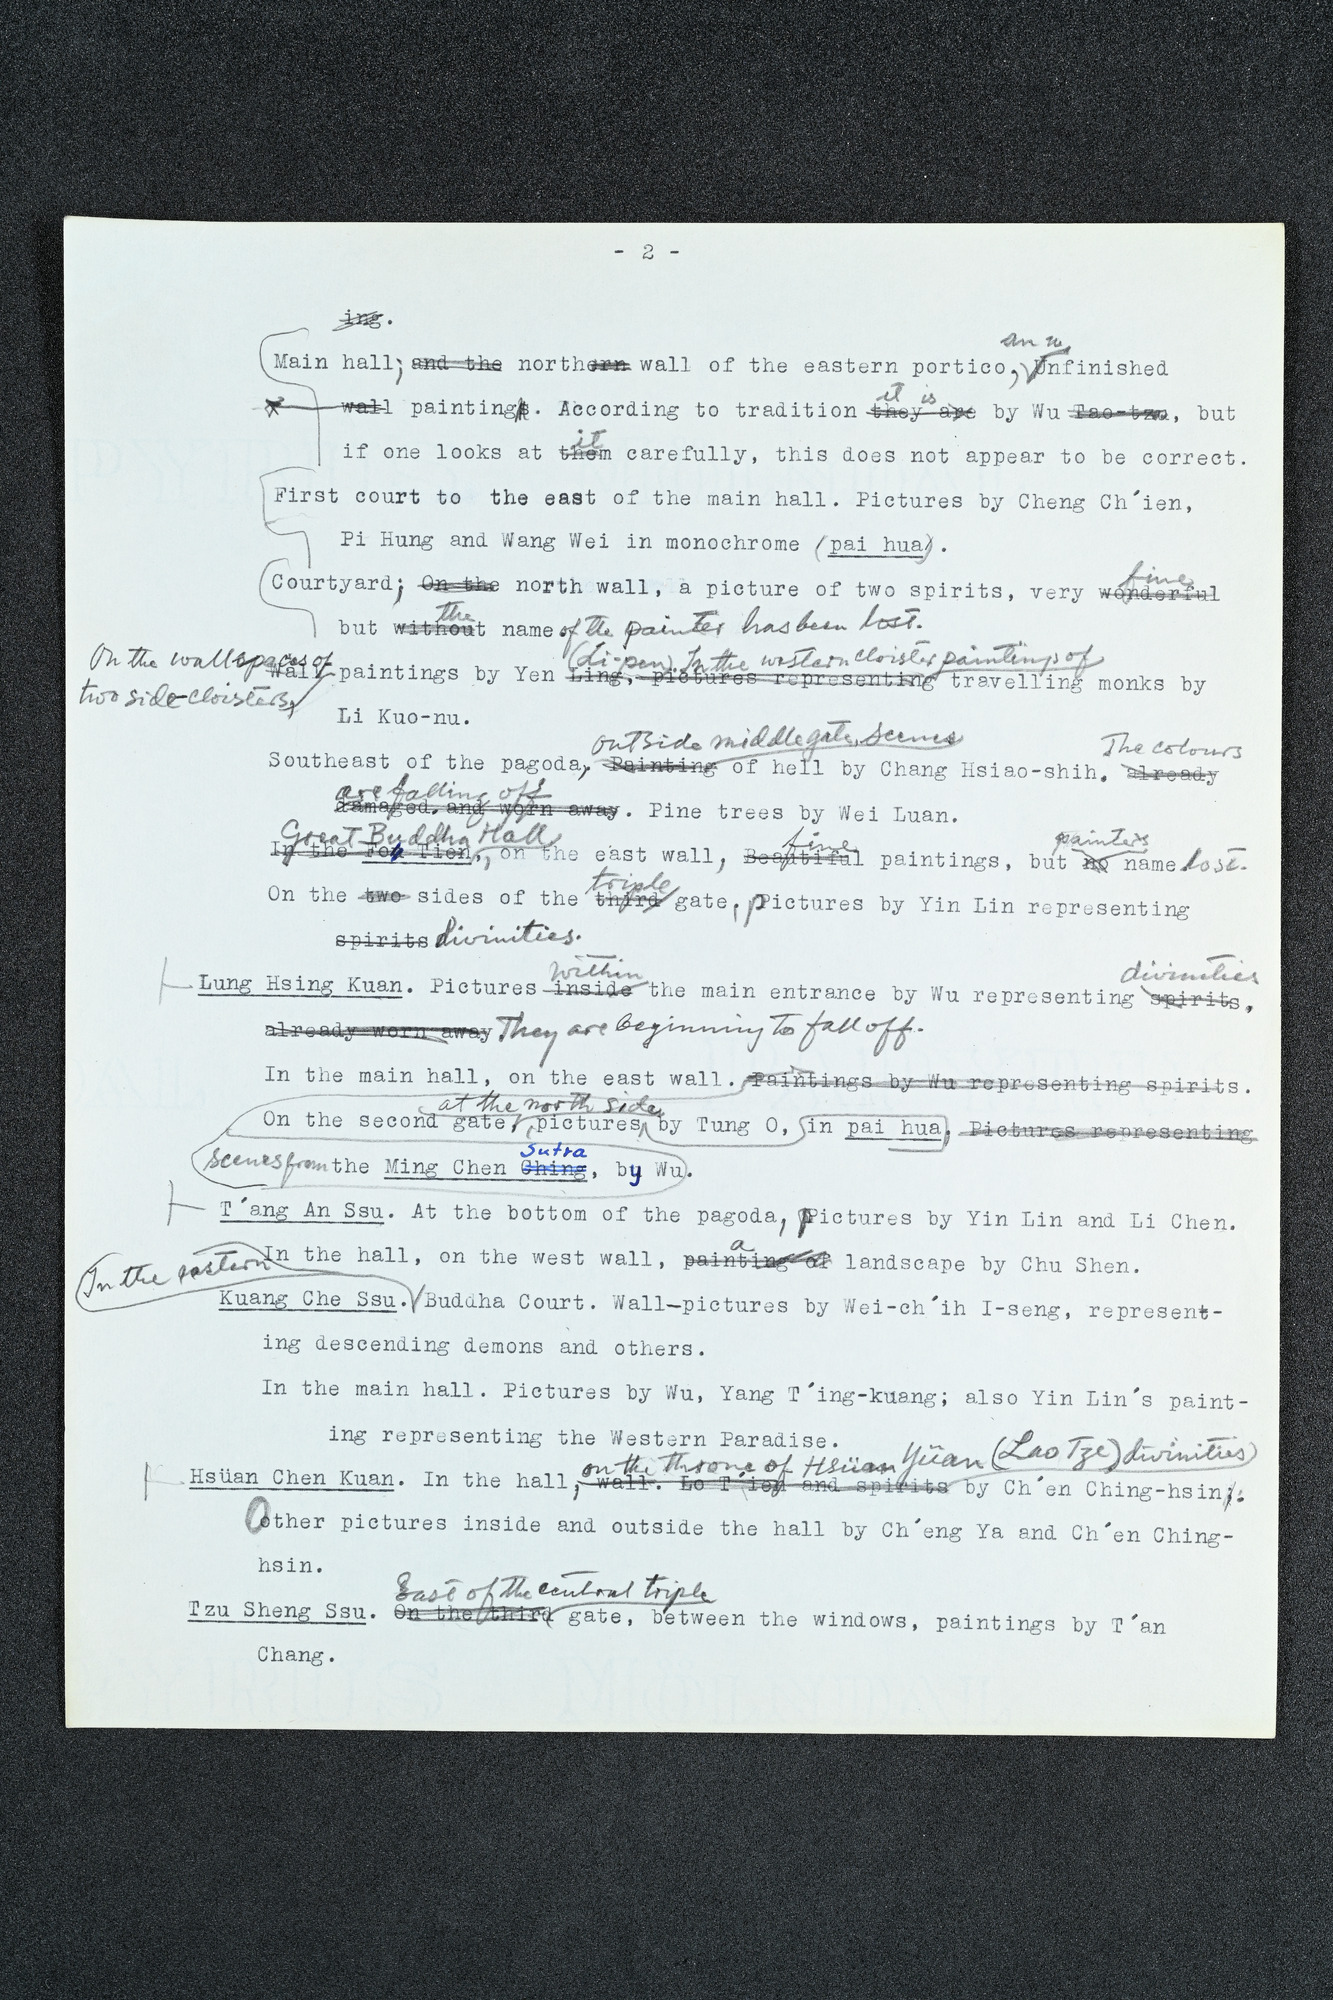 - 2 -
ing.
an u
Main hall; and the northern wall of the eastern portico, Unfinished
it is
wall paintings. According to tradition they are by Wu Tao-tzu, but
it
if one looks at them carefully, this does not appear to be correct.
First court to the east of the main hall. Pictures by Cheng Ch'ien,
Pi Hung and Wang Wei in monochrome (pai hua).
fine
Courtyard; On the north wall, a picture of two spirits, very wonderful
the
but without name of the painter has been lost.
On the wallspaces of (Li-pen). In the western cloister paintings of
Wall paintings by Yen Ling, pictures representing travelling monks by
two side cloisters,
Li Kuo-nu.
outside middle gate, scenes The colours
Southeast of the pagoda, Painting of hell by Chang Hsiao-shih. already
are falling off
damaged and worn away. Pine trees by Wei Luan.
Great Buddha Hall fine painters
In the Fo Tien, on the east wall, Beautiful paintings, but no name lost.
triple
On the two sides of the third gate, pictures by Yin Lin representing
spirits divinities.
within divinities
Lung Hsing Kuan. Pictures inside the main entrance by Wu representing spirits,
already worn away They are beginning to fall off.
In the main hall, on the east wall. Paintings by Wu representing spirits.
at the north side
On the second gate, pictures by Tung O, in pai hua. Pictures representing
Sutra
scenes from the Ming Chen Ching, by Wu.
T'ang An Ssu. At the bottom of the pagoda, pictures by Yin Lin and Li Chen.
a
In the hall, on the west wall, painting of landscape by Chu Shen.
In the eastern
Kuang Che Ssu. Buddha Court. Wall-pictures by Wei-ch'ih I-seng, represent-
ing descending demons and others.
In the main hall. Pictures by Wu, Yang T'ing-kuang; also Yin Lin's paint-
ing representing the Western Paradise.
on the throne of Hsüan Yüan (Lao Tze) divinities
Hsüan Chen Kuan. In the hall, wall. Lo T'ien and spirits by Ch'en Ching-hsin;.
Other pictures inside and outside the hall by Ch'eng Ya and Ch'en Ching-
hsin.
East of the central triple
Tzu Sheng Ssu. On the third gate, between the windows, paintings by T'an
Chang.